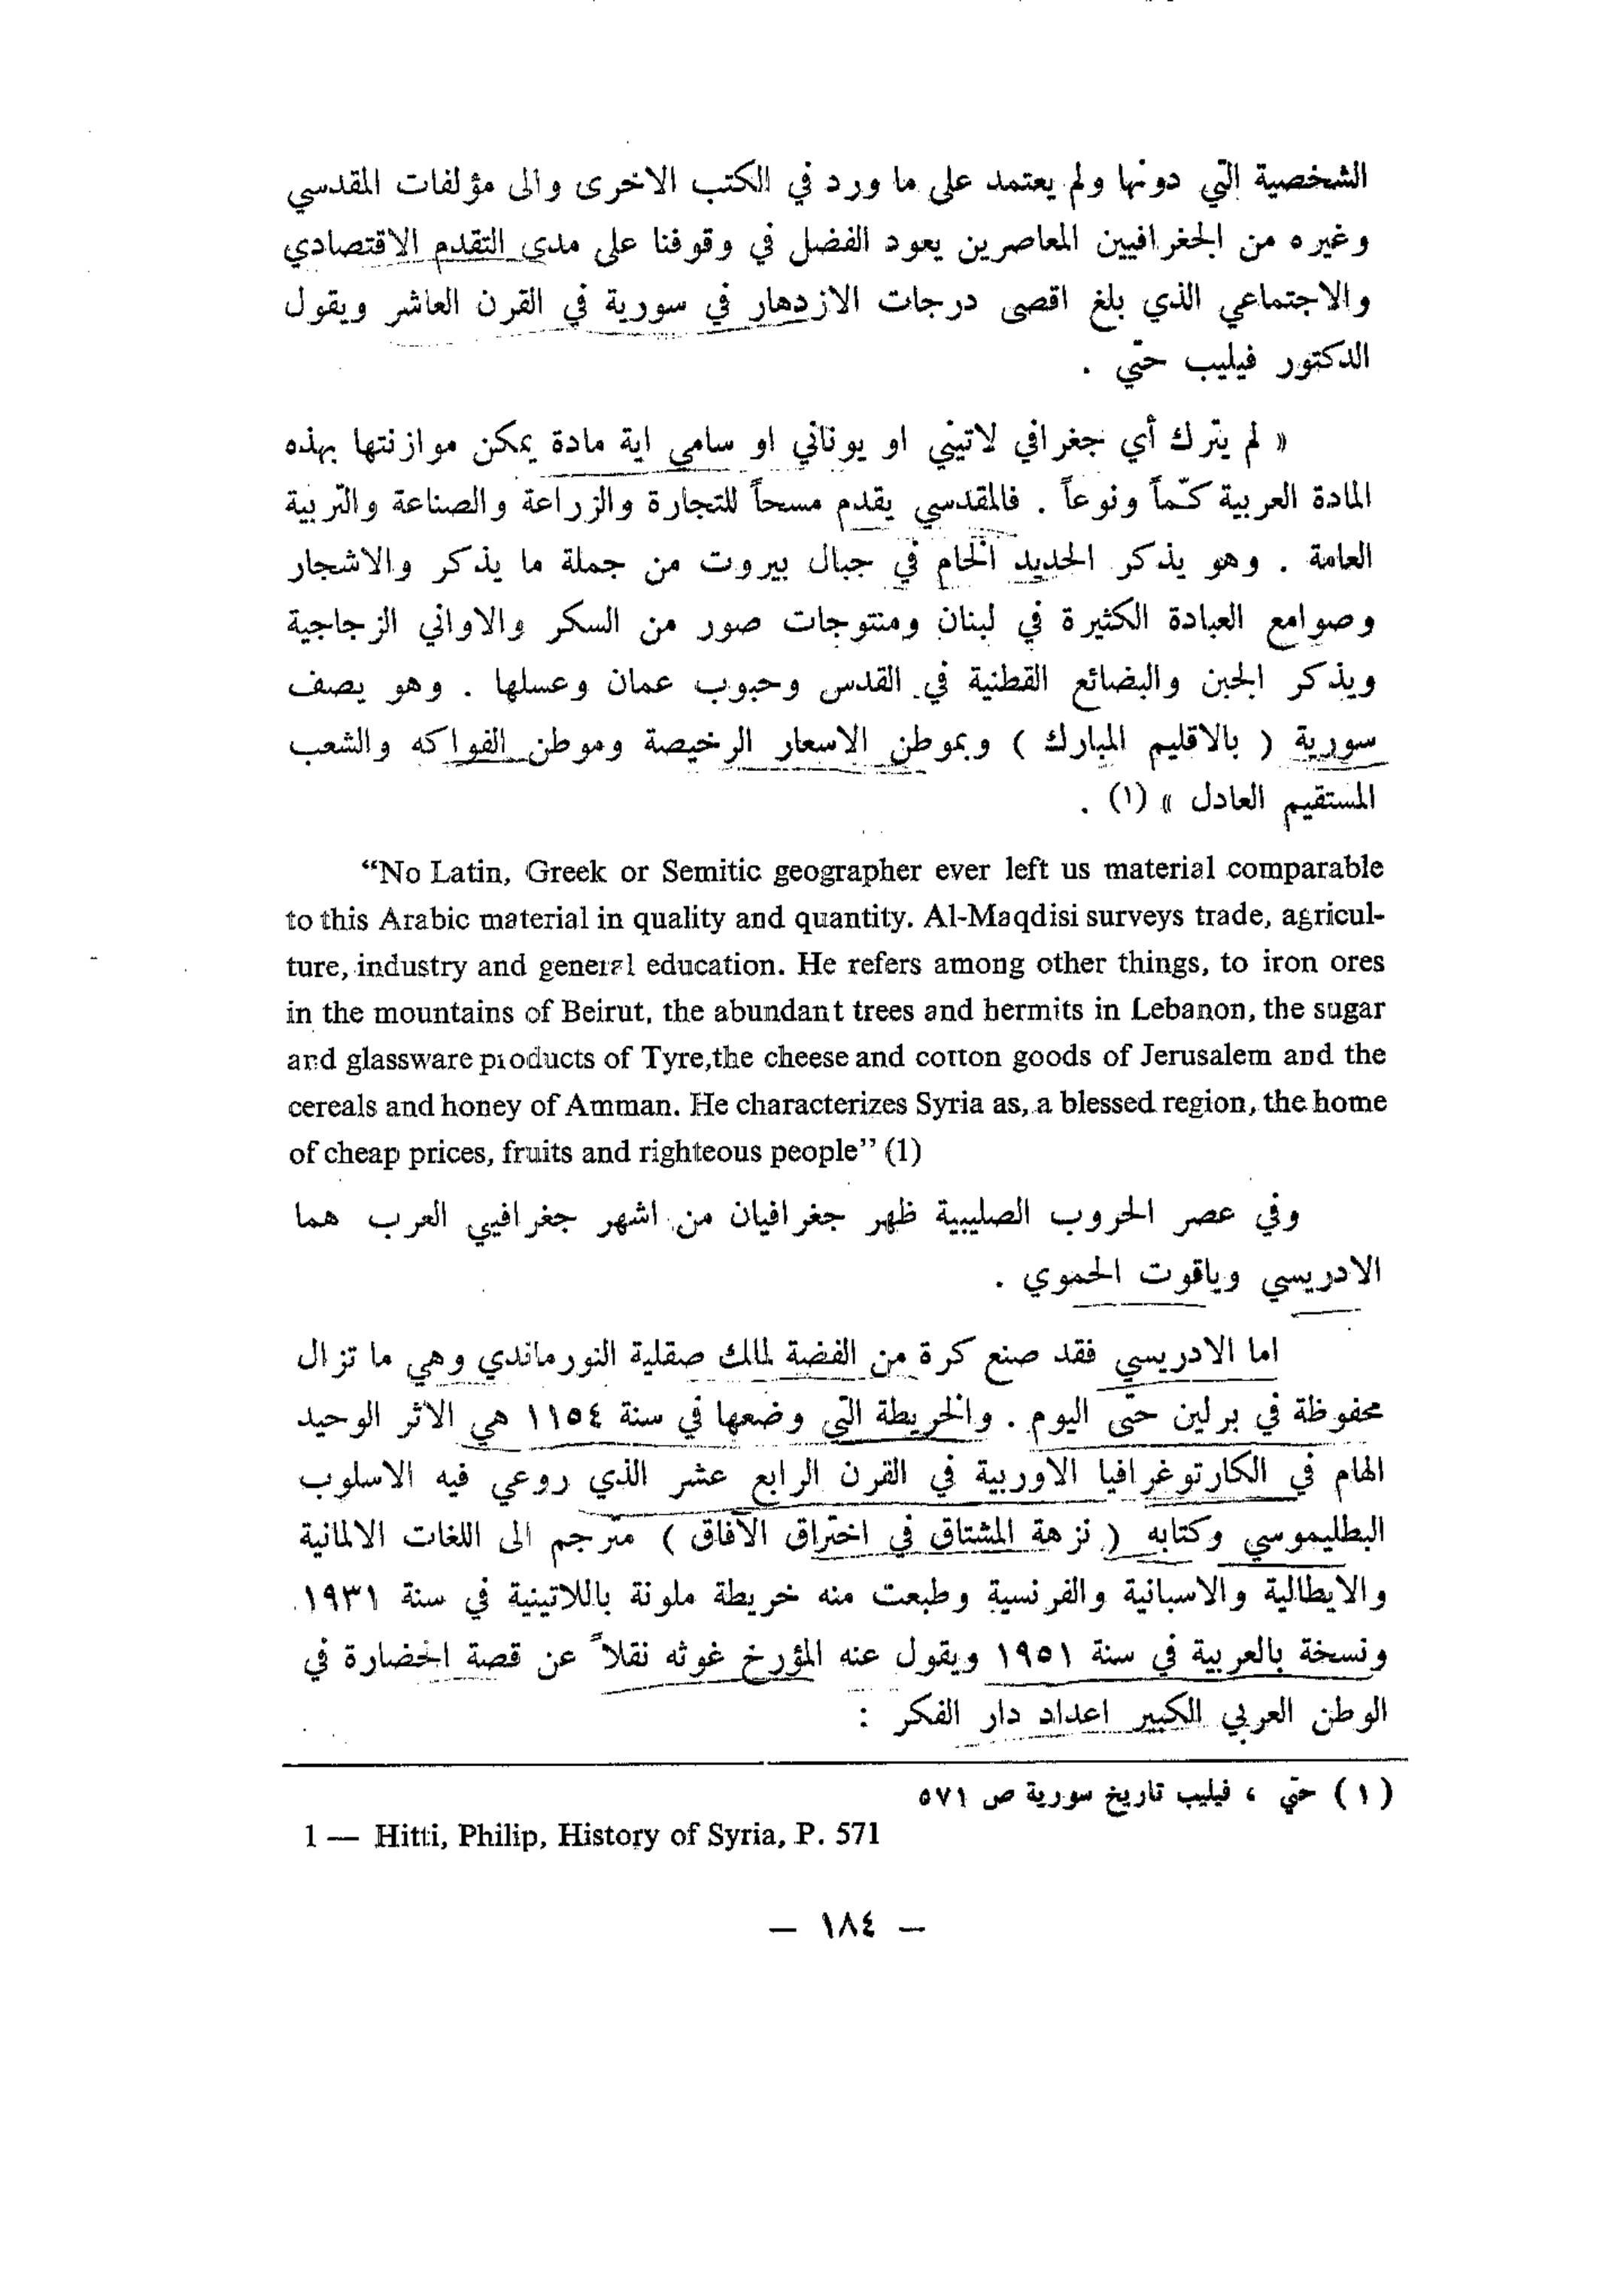 الشخصية التي دونها ولم يعتمد على ما ورد في الكتب الاخرى والى مؤلفات المقدسي
وغيره من الجغرافيين المعاصرين يعود الفضل في وقوفنا على مدى التقدم الاقتصادي
والاجتماعي الذي بلغ اقصى درجات الازدهار في سورية في القرن العاشر ويقول
الدكتور فيليب حتّي .
« لم يترك أي جغرافي لاتيني او يوناني او سامي اية مادة يمكن موازنتها بهذه
المادة العربية كمّاً ونوعاً . فالمقدسي يقدم مسحاً للتجارة والزراعة والصناعة والتربية
العامة . وهو يذكر الحديد الخام في جبال بيروت من جملة ما يذكر والاشجار
وصوامع العبادة الكثيرة في لبنان ومنتوجات صور من السكر والاواني الزجاجية
ويذكر الجبن والبضائع القطنية في القدس وحبوب عمان وعسلها . وهو يصف
سورية ( بالاقليم المبارك ) وبموطن الاسعار الرخيصة وموطن الفواكه والشعب
المستقيم العادل » (١) .
“No Latin, Greek or Semitic geographer ever left us material comparable
to this Arabic material in quality and quantity. Al-Maqdisi surveys trade, agricul-
ture, industry and general education. He refers among other things, to iron ores
in the mountains of Beirut, the abundant trees and hermits in Lebanon, the sugar
and glassware products of Tyre,the cheese and cotton goods of Jerusalem and the
cereals and honey of Amman. He characterizes Syria as, a blessed region, the home
of cheap prices, fruits and righteous people” (1)
وفي عصر الحروب الصليبية ظهر جغرافيان من اشهر جغرافيي العرب هما
الادريسي وياقوت الحموي .
اما الادريسي فقد صنع كرة من الفضة لملك صقلية النورماندي وهي ما تزال
محفوظة في برلين حتى اليوم . والخريطة التي وضعها في سنة ١١٥٤ هي الاثر الوحيد
الهام في الكارتوغرافيا الاوربية في القرن الرابع عشر الذي روعي فيه الاسلوب
البطليموسي وكتابه ( نزهة المشتاق في اختراق الآفاق ) مترجم الى اللغات الالمانية
والايطالية والاسبانية والفرنسية وطبعت منه خريطة ملونة باللاتينية في سنة ١٩٣١
ونسخة بالعربية في سنة ١٩٥١ ويقول عنه المؤرخ غوثه نقلاً عن قصة الحضارة في
الوطن العربي الكبير اعداد دار الفكر :
(١) حتّي ، فيليب تاريخ سورية ص ٥٧١
1 — Hitti, Philip, History of Syria, P. 571
— ١٨٤ —